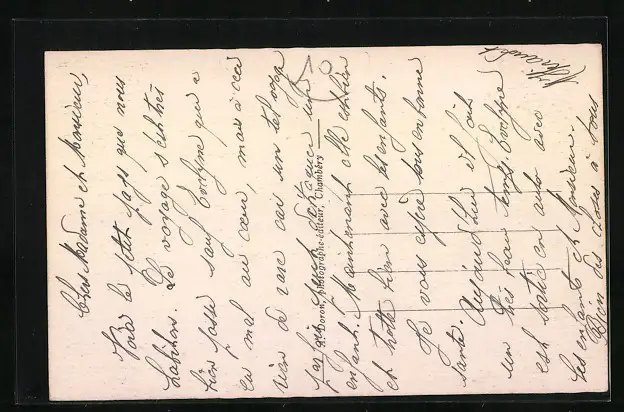 Chers Madame et Monsieur,
Voici le petit pays que nous
habitons. Le voyage s'est très
bien passé sauf Evelyne qui a
eu mal au cœur, mais à cela
rien de rare car un tel voyage
fatigue surtout une
enfant. Maintenant elle est bien
et trotte bien avec les enfants.
Je vous espère tous en bonne
santé. Aujourd'hui il fait
un très beau temps. Evelyne
est partie en auto avec
les enfants et Monsieur.
Bien des à tous
D. Doron, photographe-éditeur, Chambéry